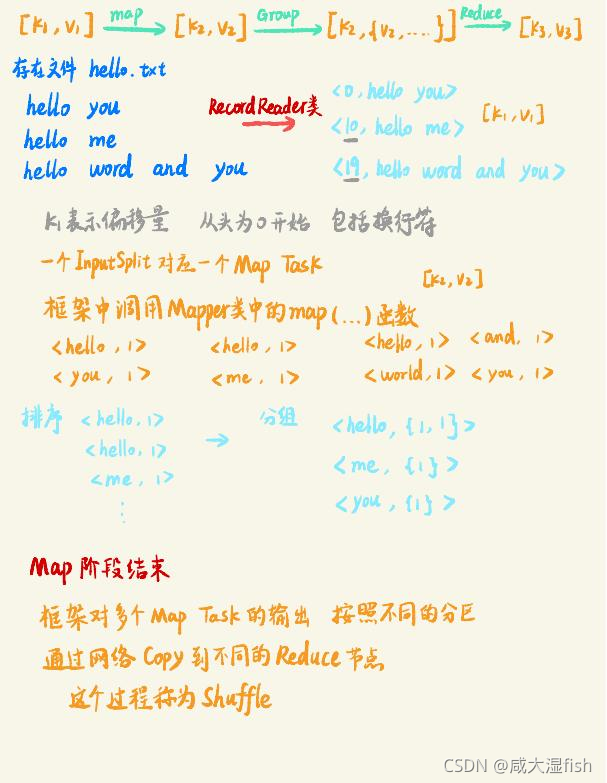 [k₁, v₁] map [k₂, v₂] Group [k₂, {v₂, ....}] Reduce [k₃, v₃]
存在文件 hello.txt
hello you
hello me
hello word and you
RecordReader类
<0, hello you>
<10, hello me>
<19, hello word and you>
[k₁, v₁]
k₁表示偏移量 从头为0开始 包括换行符
一个InputSplit对应一个Map Task
[k₂, v₂]
框架中调用Mapper类中的map(...)函数
<hello, 1> <hello, 1> <hello, 1> <and, 1>
<you, 1> <me, 1> <world, 1> <you, 1>
排序 <hello, 1>
<hello, 1>
<me, 1>
⋮
→ 分组
<hello, {1, 1}>
<me, {1}>
<you, {1}>
Map 阶段结束
框架对多个 Map Task 的输出 按照不同的分区
通过网络 Copy 到不同的 Reduce 节点
这个过程称为 Shuffle
CSDN @咸大湿fish